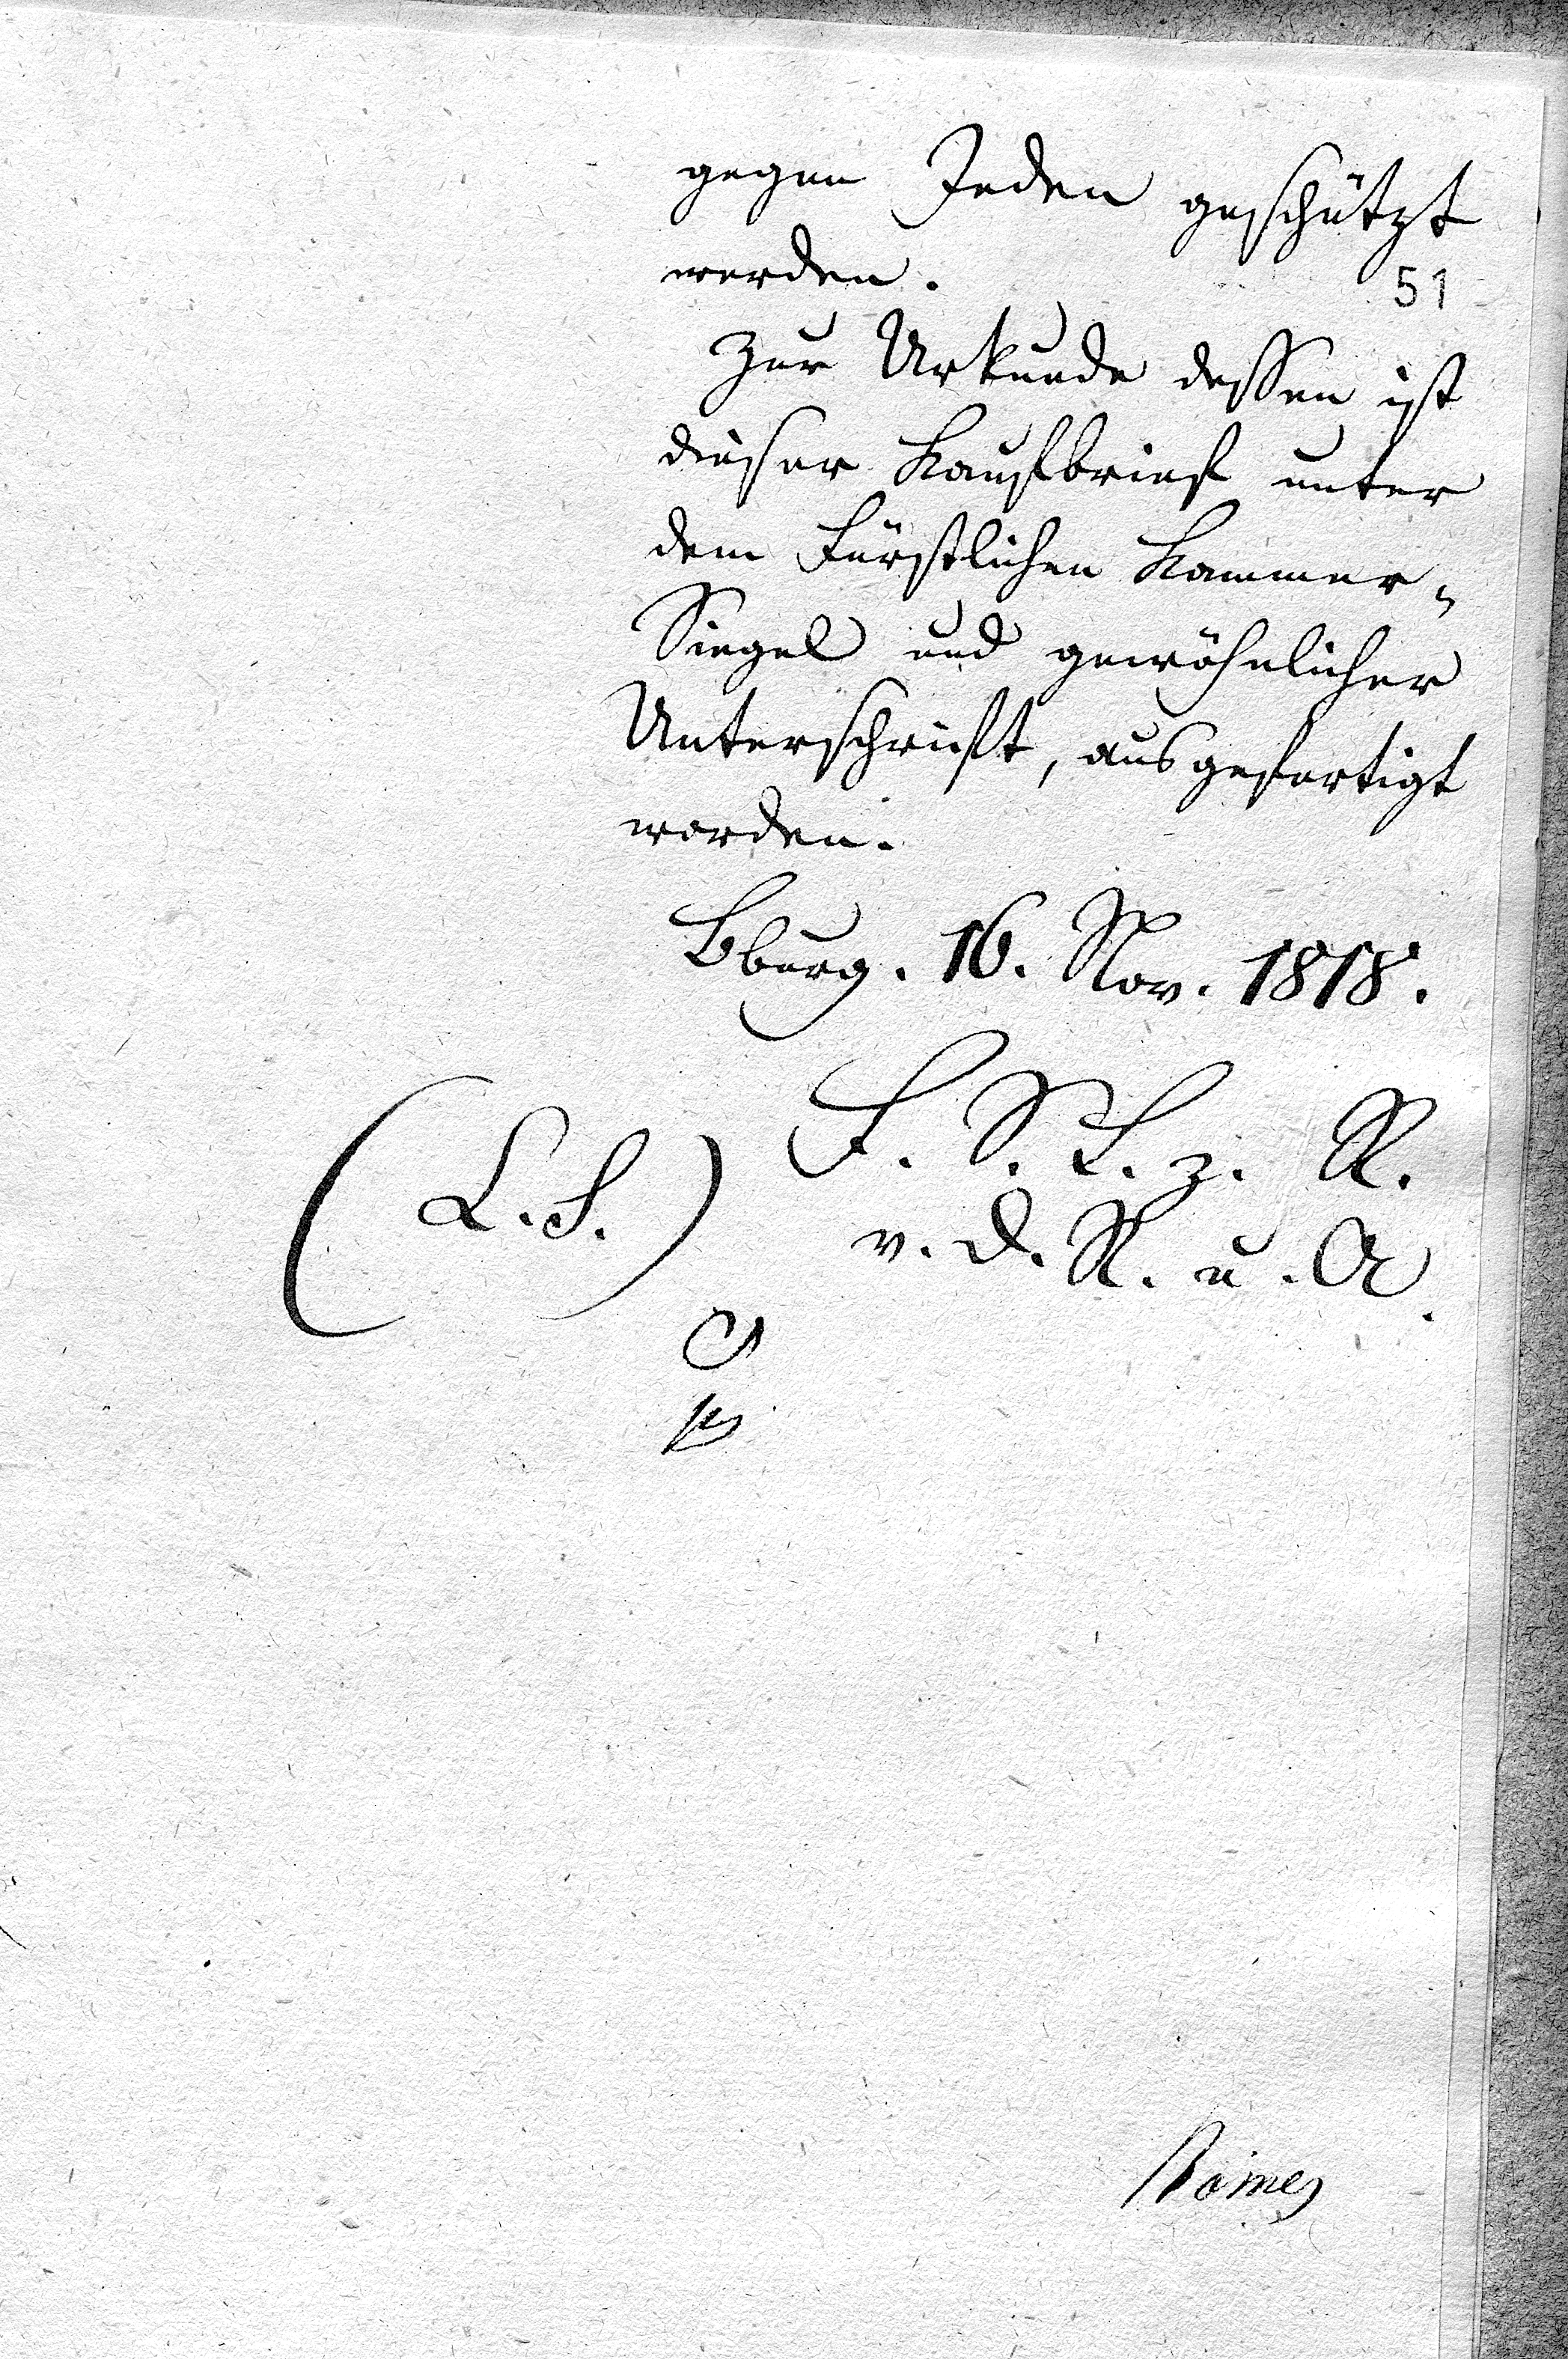 gegen Jeden geschützt
werden.
51
Zur Urkunde dessen ist
dieser Kaufbrief unter
dem Fürstlichen Kammer-
Siegel und gewöhnlicher
Unterschrift, ausgefertigt
worden.
Bburg. 16. Nov. 1818.
F. S. L. z. R.
(L. S.)
v. d. R. u. A.